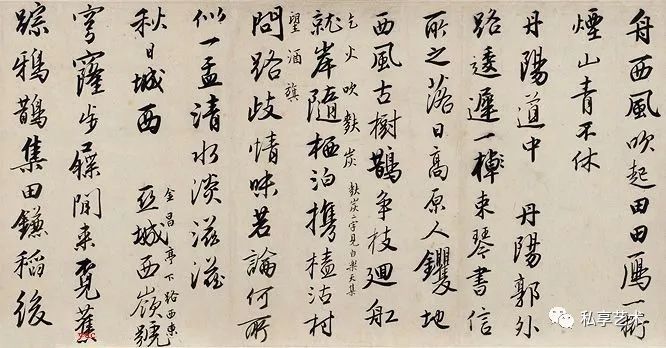 舟西風吹起田田鴈一
煙山青不休
丹陽道中 丹陽郭外
路逶遲一棹束琴書信
所之落日高原人钁地
西風古樹鵲爭枝廻舡
乞火吹麩炭 麩炭二字見白樂天集
就岸隨栖泊携榼沽村
望酒旗
問路歧情味若論何所
似一盂清水淡滋滋
秋日城西
金昌亭下路西東
亞城西嶺號
穹窿步屧閒來覓舊
踪鴉鵲集田鎌稻後
私享艺术